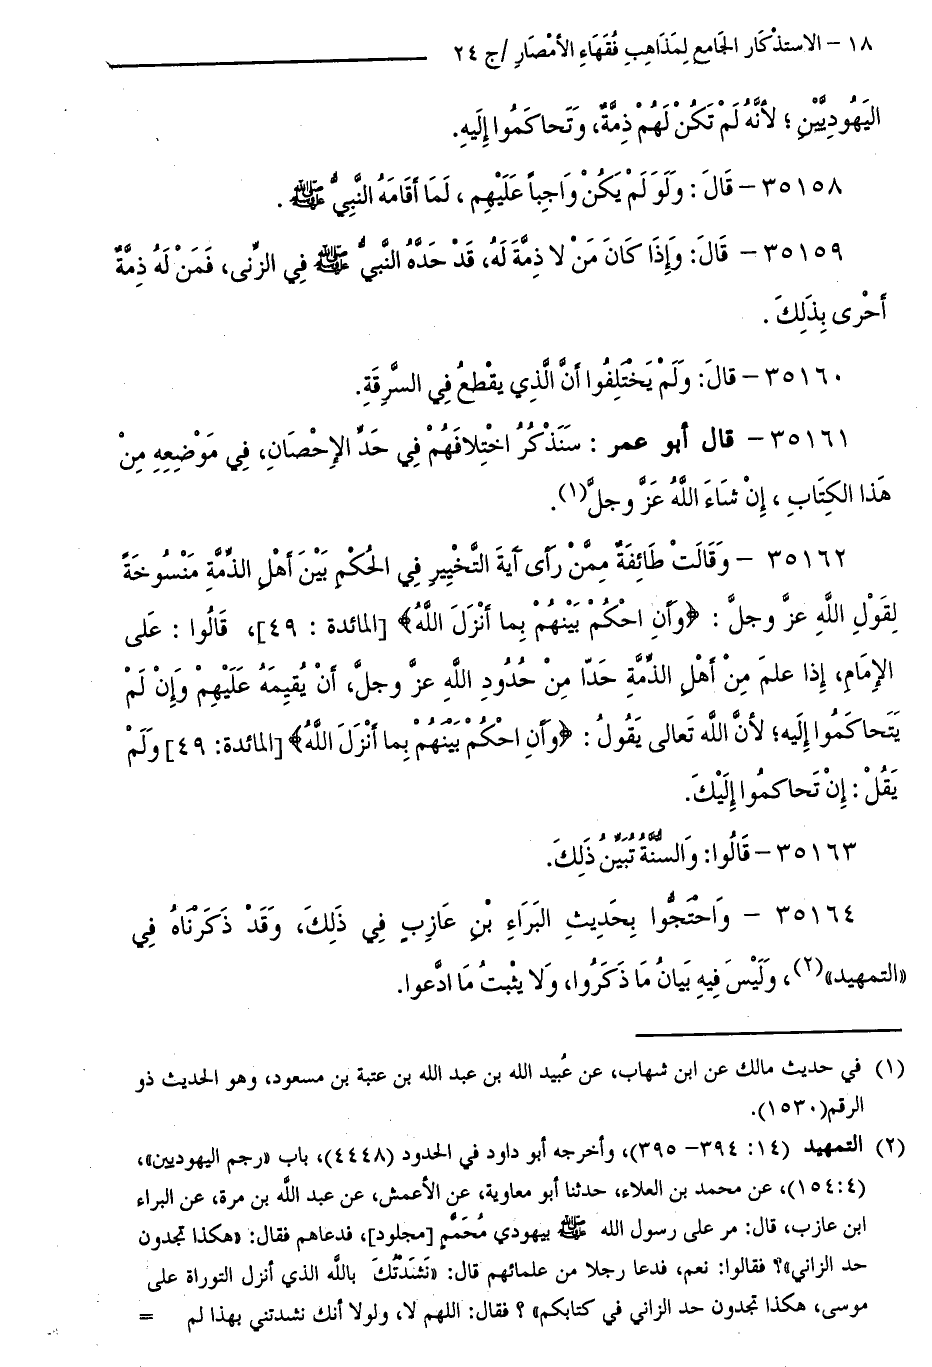 ١٨ – الاستذْكَار الجَامع لِمَذَاهِبِ فُقَهَاءِ الأَمْصَارِ /ج ٢٤
اليَهُودِيَّيْنِ ؛ لأنَّهُ لَمْ تَكُنْ لَهُمْ ذِمَّةٌ، وَتَحاكَمُوا إِلَيهِ.
٣٥١٥٨ – قَالَ : وَلَوَ لَمْ يَكُنْ وَاجِباً عَلَيْهِم ، لَمَا أَقَامَهُ النَّبِيُّ ﷺ .
٣٥١٥٩ – قَالَ: وَإِذَا كَانَ مَنْ لا ذِمَّةَ لَهُ، قَدْ حَدَّهُ النَّبيُّ ﷺ فِي الزِّنى، فَمَنْ لَهُ ذِمَّةٌ
أَحْرى بِذَلِكَ .
٣٥١٦٠ – قالَ: وَلَمْ يَخْتَلِفُوا أنَّ الَّذِي يقْطعُ فِي السَّرِقَةِ.
٣٥١٦١ – قال أبو عمر : سَنَذْكُرُ اخْتِلافَهُمْ فِي حَدِّ الإِحْصَانِ، فِي مَوْضِعِهِ مِنْ
هَذا الكِتَابِ ، إِنْ شاءَ اللَّهُ عَزَّ وجلَّ(١).
٣٥١٦٢ – وَقَالَتْ طَائِفَةٌ مِمَّنْ رَأى آيَةَ التَّخْيِيرِ فِي الحُكْمِ بَيْنَ أَهْلِ الذِّمَّةِ مَنْسُوخَةً
لِقَوْلِ اللَّهِ عزَّ وجلَّ : ﴿وَأَنِ احْكُمْ بَيْنَهُمْ بِما أَنْزَلَ اللَّهُ﴾ [المائدة : ٤٩]، قَالُوا : عَلى
الإِمَامِ، إِذا علمَ مِنْ أَهْلِ الذِّمَّةِ حَدّا مِنْ حُدُودِ اللَّهِ عزَّ وجلَّ، أَنْ يُقيِمَهُ عَلَيْهِمْ وَإِن لَمْ
يَتَحاكَمُوا إِلَيه؛ لأنَّ اللَّه تَعالى يَقُولُ : ﴿وأَنِ احْكُمْ بَيْنَهُمْ بِما أَنْزَلَ اللَّهُ﴾[المائدة: ٤٩] وَلَمْ
يَقُلْ : إِنْ تَحاكمُوا إِلَيْكَ.
٣٥١٦٣ – قَالُوا: وَالسنَّةُ تُبَيِّنُ ذَلِكَ.
٣٥١٦٤ – وَاحْتَجُّوا بِحَدِيثِ البَرَاءِ بْنِ عَازِبٍ فِي ذَلِكَ، وَقَدْ ذَكَرْنَاهُ فِي
«التمهيد»(٢)، وَلَيْسَ فِيهِ بَيَانُ مَا ذَكَرُوا، وَلا يثْبتُ مَا ادَّعوا.
(١) في حديث مالك عن ابن شهاب، عن عُبيد الله بن عبد الله بن عتبة بن مسعود، وهو الحديث ذو
الرقم(١٥٣٠).
(٢) التمهيد (١٤: ٣٩٤– ٣٩٥)، وأخرجه أبو داود في الحدود (٤٤٤٨)، باب «رجم اليهوديين»،
(١٥٤:٤)، عن محمد بن العلاء، حدثنا أبو معاوية، عن الأعمش، عن عبد اللَّه بن مرة، عن البراء
ابن عازب، قال: مر على رسول الله ﷺ بيهودي مُحَمَّم [مجلود]، فدعاهم فقال: «هكذا تجدون
حد الزاني»؟ فقالوا: نعم، فدعا رجلا من علمائهم قال: «نَشَدْتُكَ باللَّه الذي أنزل التوراة على
موسى، هكذا تجدون حد الزاني في كتابكم» ؟ فقال: اللهم لا، ولولا أنك نشدتني بهذا لم =